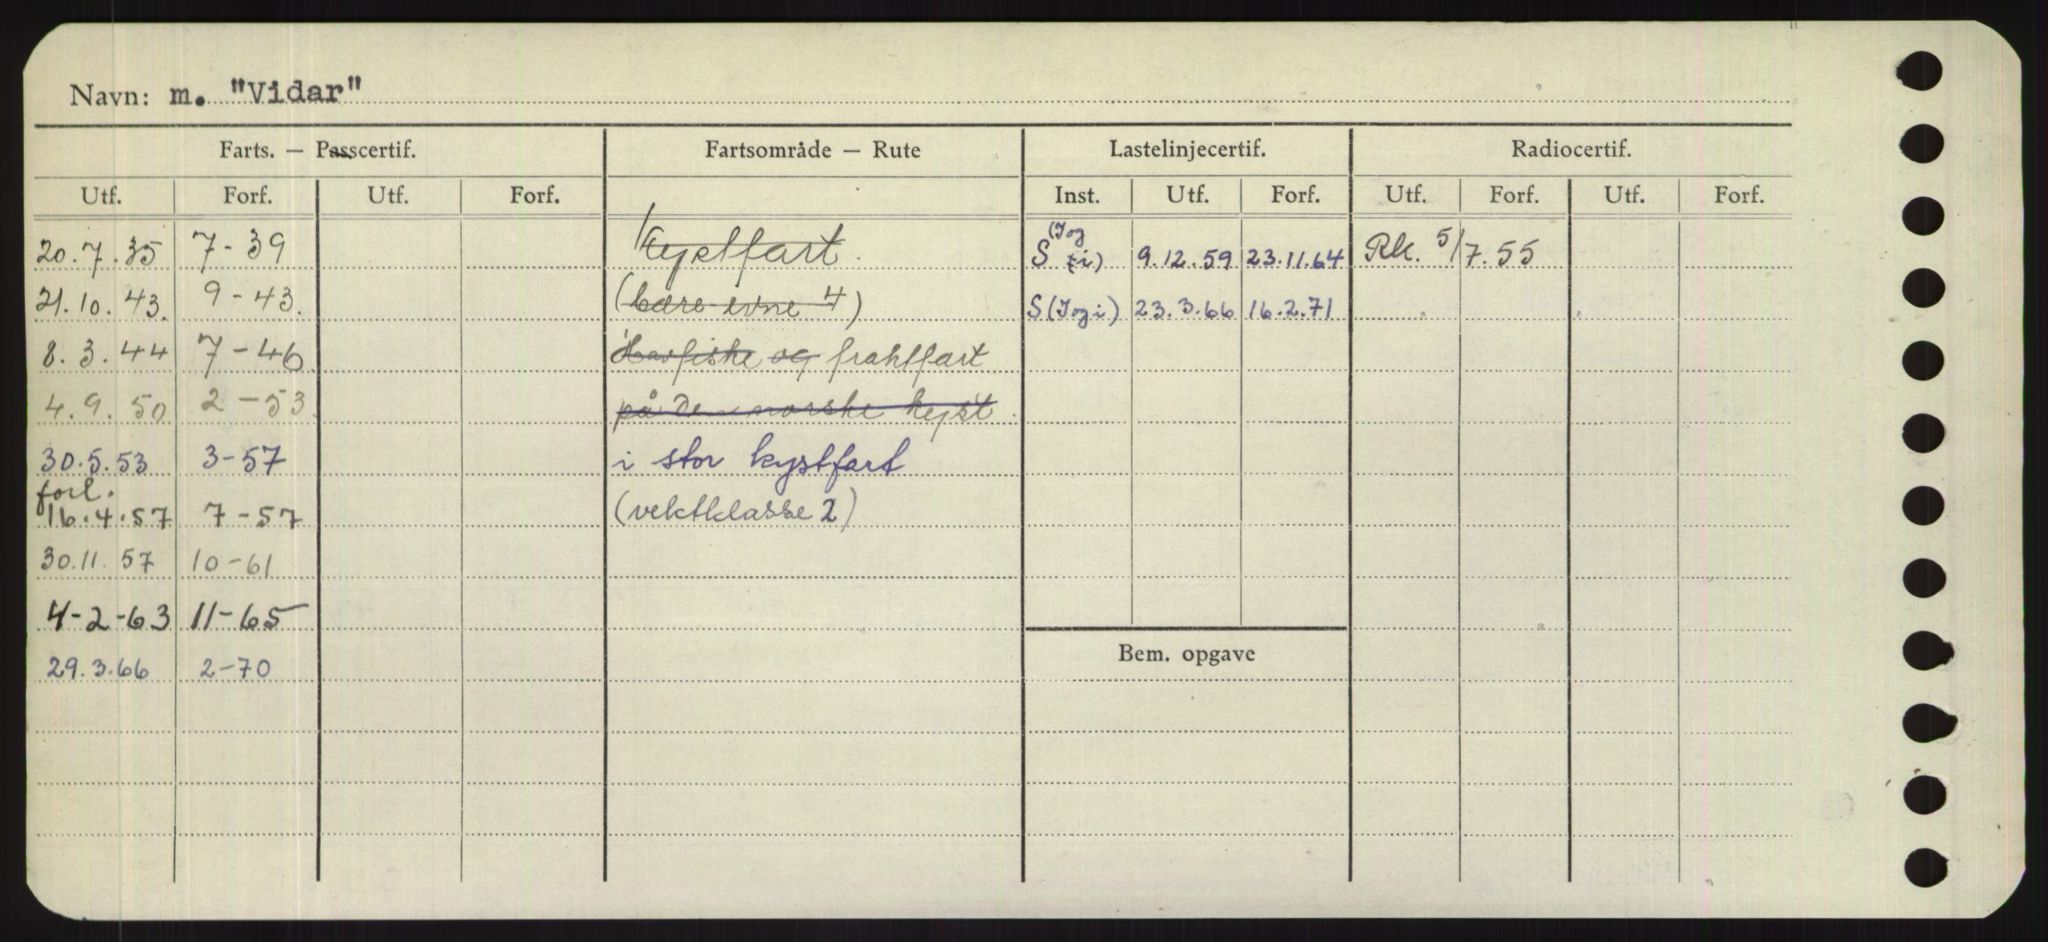 Navn: m. "Vidar"
Farts. — Passcertif. Fartsområde — Rute Lastelinjecertif. Radiocertif.
Utf. Forf. Utf. Forf. Inst. Utf. Forf. Utf. Forf. Utf. Forf.
20.7.35 7-39 Kystfart. S (I og i) 9.12.59 23.11.64 Rk. 5/7.55
21.10.43. 9-43. (bære-evne 4) S (I og i) 23.3.66 16.2.71
8.3.44 7-46 Havfiske og fraktfart
4.9.50 2-53. på den norske kyst.
30.5.53 3-57 i stor kystfart
forl.
16.4.57 7-57 (vektklasse 2)
30.11.57 10-61
4-2-63 11-65
Bem. opgave
29.3.66 2-70